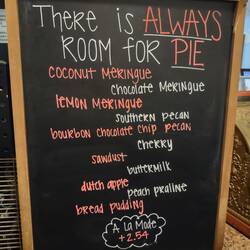 There is ALWAYS
Room for PIE
coconut meringue
chocolate meringue
lemon meringue
southern pecan
bourbon chocolate chip pecan
cherry
sawdust
buttermilk
dutch apple
peach praline
bread pudding
A La Mode
+2.54